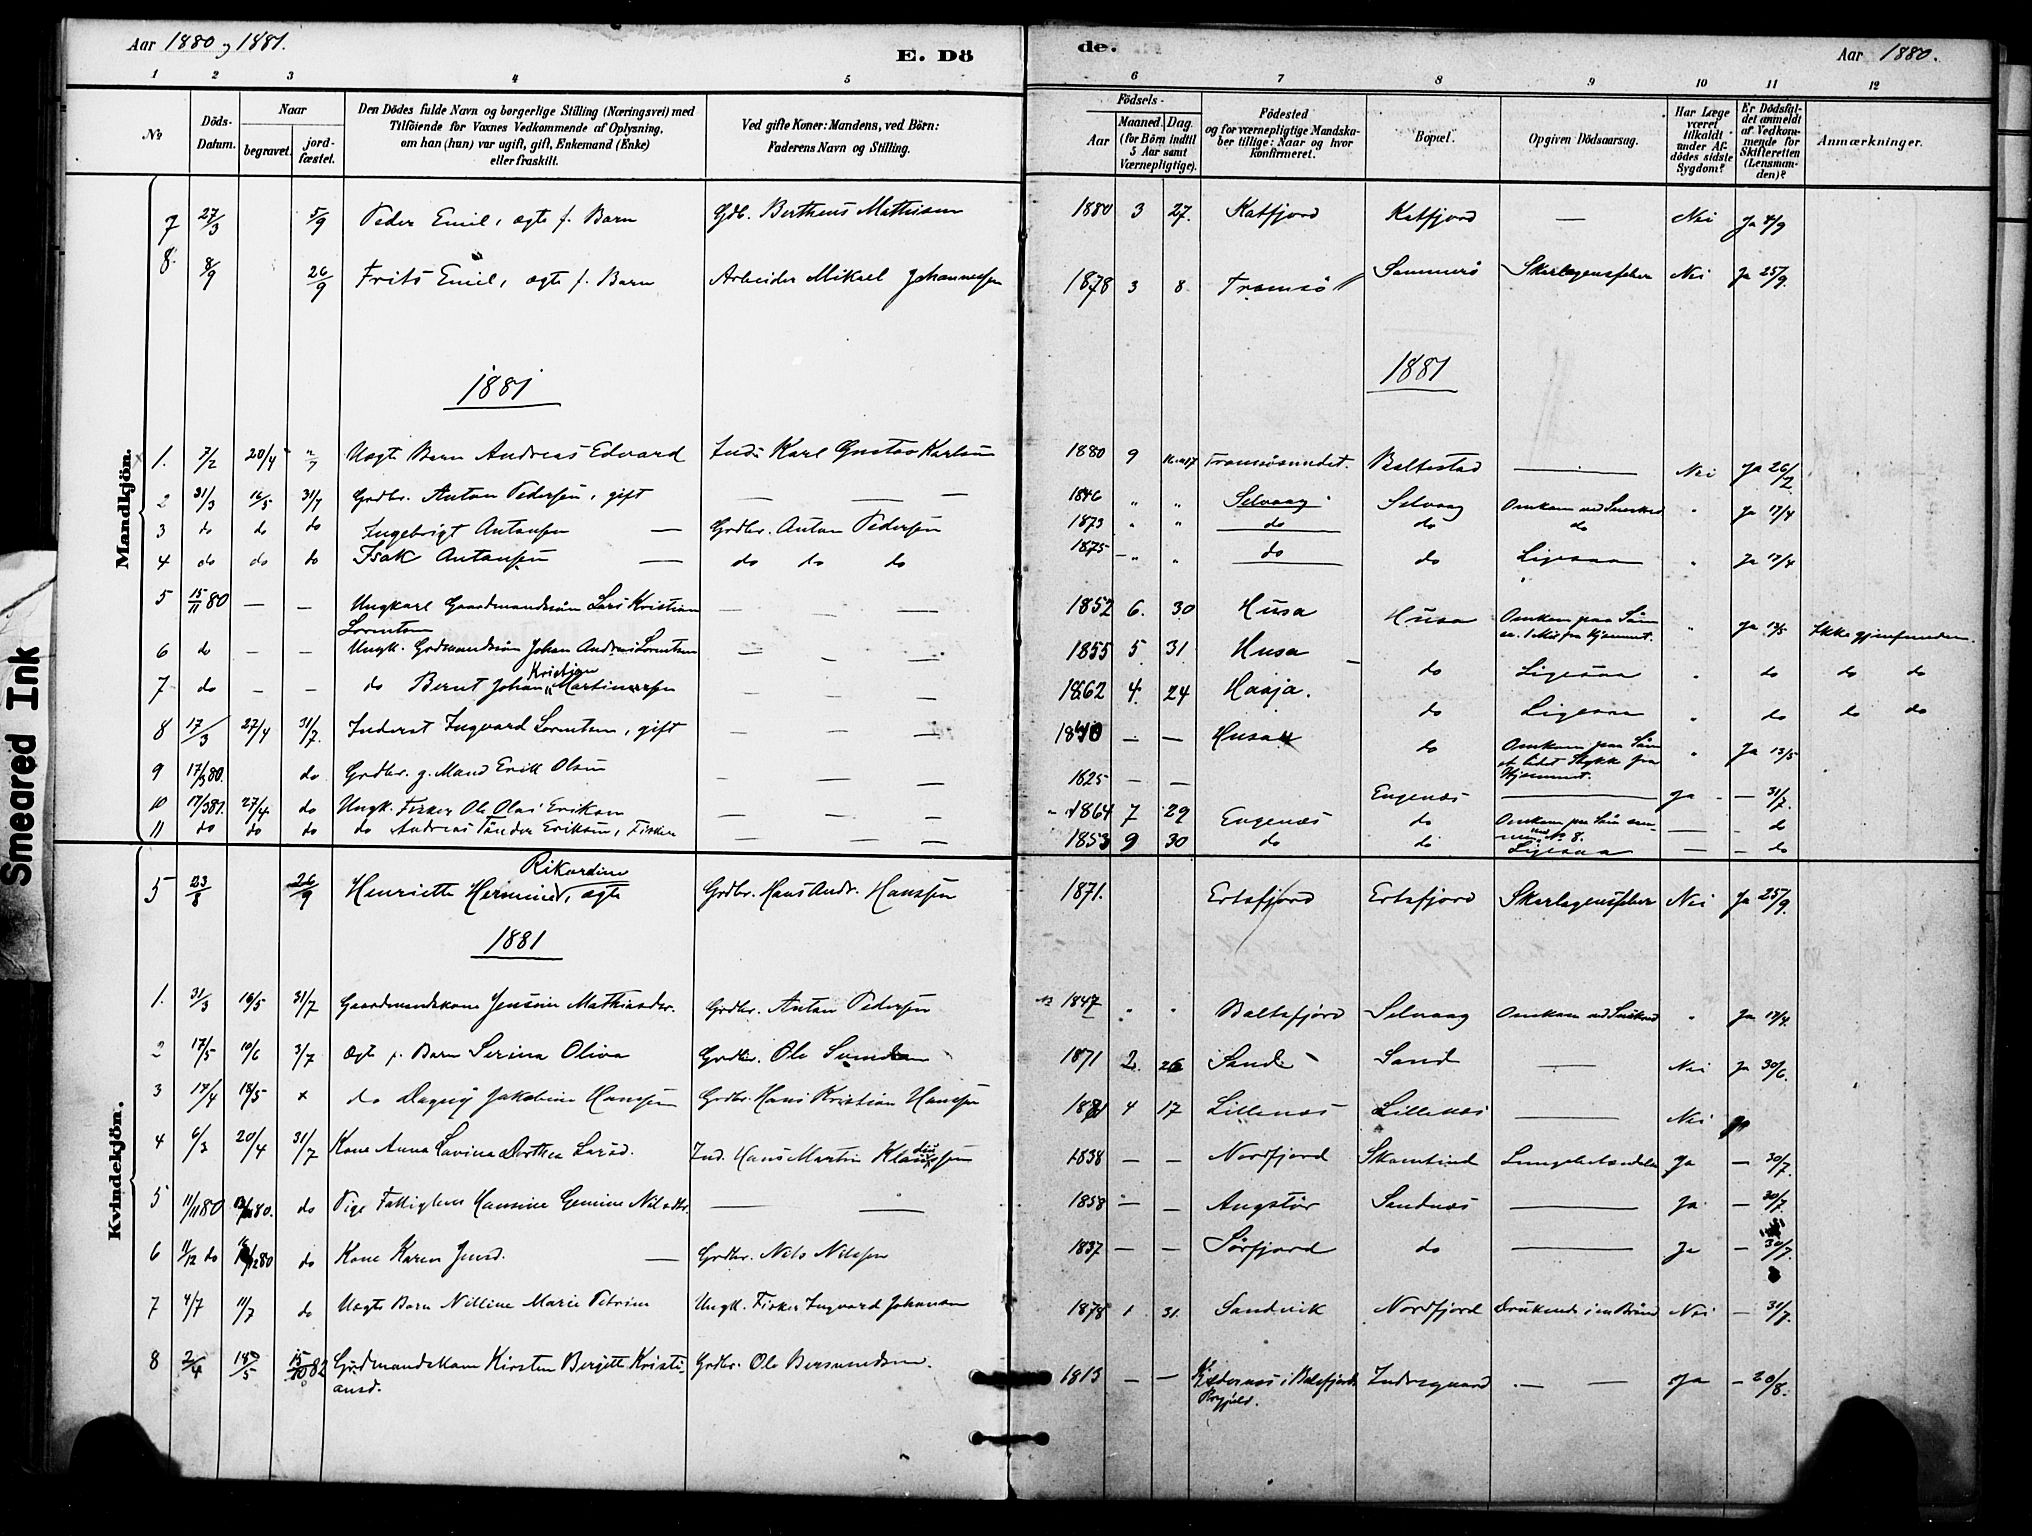 Aar 1880 og 1881.
E. Dö
de.
Aar 1880.
1 2 3 4 5
6 7 8 9 10 11 12
No
Döds-Datum.
Naar
begravet.
jord-fæstet.
Den Dödes fulde Navn og borgerlige Stilling (Næringsvei) med
Tilföiende for Voxnes Vedkommende af Oplysning,
om han (hun) var ugift, gift, Enkemand (Enke)
eller fraskilt.
Ved gifte Koner: Mandens, ved Börn:
Faderens Navn og Stilling.
Födsels-
Aar
Maaned. Dag.
(for Börn indtil
5 Aar samt
Værnepligtige).
Födested
og for værnepligtige Mandska-
ber tillige: Naar og hvor
konfirmeret.
Bopæl.
Opgiven Dödsaarsag.
Har Læge
været
tilkaldt
under Af-
dödes sidste
Sygdom?
Er Dödsfal-
det anmeldt
af Vedkom-
mende for
Skifteretten
(Lensman-
den)?
Anmærkninger.
Mandkjön.
7 27/3 5/9 Peder Emil, ægte f. Barn Gdb. Bertheus Mathisen 1880 3 27. Katfjord Katfjord — Nei Ja 4/9
8. 8/9 26/9 Frits Emil, ægte f. Barn Arbeider Mikael Johannessen 1878 3 8 Tromsö Sommerö Skarlagensfeber Nei Ja 25/9.
1881
1881
1. 7/2 20/4 Uægte Barn Andreas Edvard Inds Karl Gustav Karlsen 1880 9 Tromsösundet. Baltestad — Nei Ja 26/2
2 31/3 16/5 31/7 Grdbr. Anton Pedersen, gift — — — 1846 " " Selvaag Selvaag Omkom ved Sneskred " Ja 17/4
3 do do do Ingebrigt Antonsen — Grdbr. Anton Pedersen 1873 " " do do do
4 do do do Isak Antonsen — do do do 1875 — " " do do Ligesaa " Ja 17/4
5 15/11 80 — — Ungkarl Gaardmandssön Lars Kristian
Lorentsen — — 1852 6. 30 Husa Husa Omkom paa Söen
" Ja 13/5 Ikke gjenfunden.
6 do — — Ungk. Grdmandssön Johan Andreas Lorentsen — — 1855 5 31 Husa — do Ligesaa " do do do
7 do — — do Bernt Johan Kristian Martinussen — — 1862 4. 24 Haaja. do Ligesaa " do do do
8 17/3 27/4 31/7. Inderst Ingvard Lorentsen, gift — — 1840 — — Husa do Omkom paa Söen
et lidet Stykke fra
Hjemmet. " Ja 13/5
9 do Grdbr. g. Mand Erik Olsen — — 1825 — — Engenæs — Ja — 31/7.
10 17/3 81. 27/4 do Ungk. Fisker Ole Olai Eriksen — — 1864 7 29 Engenæs do Omkom paa Söen sam-
men med No 8. — — do
11 do do do do Andreas Tönder Eriksen, Fisker — — 1853 9 30 do do Ligesaa — — do
Kvindekjön.
5 23/8 26/9 Henriette Hermine Rikardine, ægte Grdbr. Hans Andr. Hanssen 1871. Ersfjord Ersfjord Skarlagensfeber Nei Ja 25/9.
1881
1. 31/3 16/5 31/7 Gaardmandskone Jensine Mathiasdtr. Grdbr. Anton Pedersen 1847 " " Balsfjord Selvaag Omkom ved Sneskred " Ja 17/4.
2 17/5 10/6 3/7 Ægte f. Barn Serina Oliva Grdbr. Ole 1871 2. 26 Sand Sand — Nei Ja 30/6.
3 17/4 18/5 × do Dagny Jakobine Hanssen Grdbr. Hans Kristian Hanssen 1881 4 17 Lillenæs Lillenæs — Nei
4 6/3 20/4 31/7 Kone Anna Lovina Dorthea Larsd. Ind. Hans Martin Klaudiussen 1838 — — Nordfjord Skamtind Lungebetændelse Ja — 30/7.
5 11/11 80 do Pige Fattiglem Hansine Gemine Nilsdtr. — — 1858 — — Angstör Sandnæs — Ja — 30/7.
6 11/12 do do Kone Karen Jensd. — Grdbr. Nils Nilssen 1837 — — Sörfjord do — Ja — 30/7.
7 4/7 11/7 do Uægte Barn Nilline Marie Petrine Ungk. Fisker Ingvard Johansen 1878 1 31. Sandvik Nordfjord Druknede i en Brönd Nei — 31/7
8 2/4 18/5 15/10 82 Grdmandskone Kirsten Bergitte Kristi-
ansd. Grdbr. Ole Bersvendsen. 1813 — — i Balsfjord
Prgjeld. Indregaard — — Ja — 20/8.
Smeared Ink